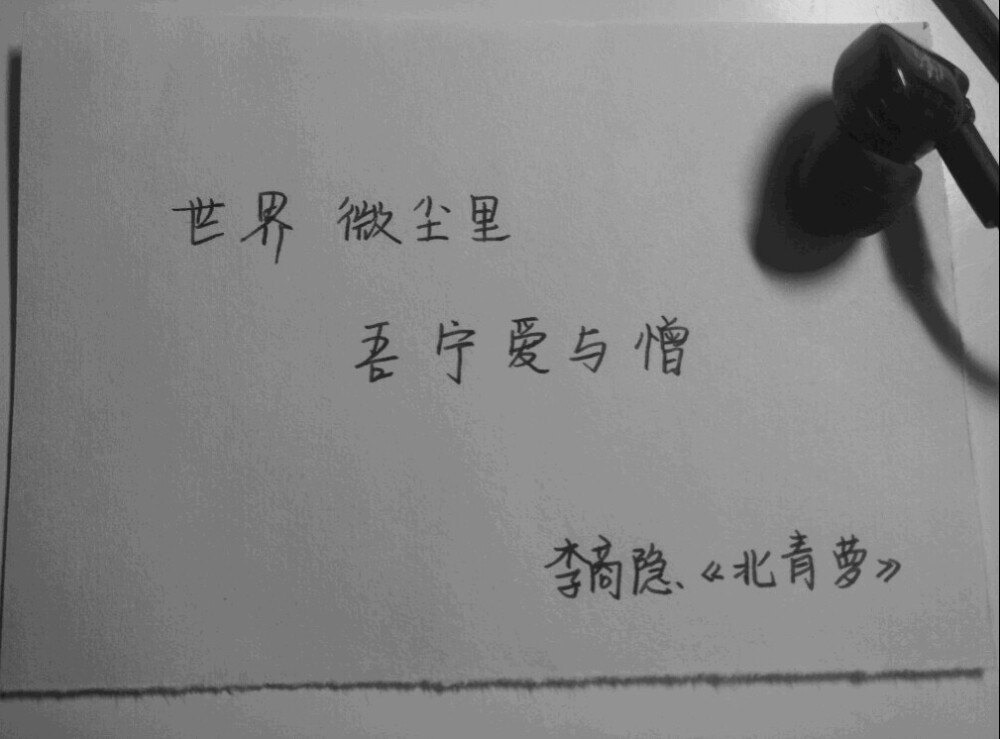 世界 微尘里
吾宁爱与憎
李商隐、《北青萝》